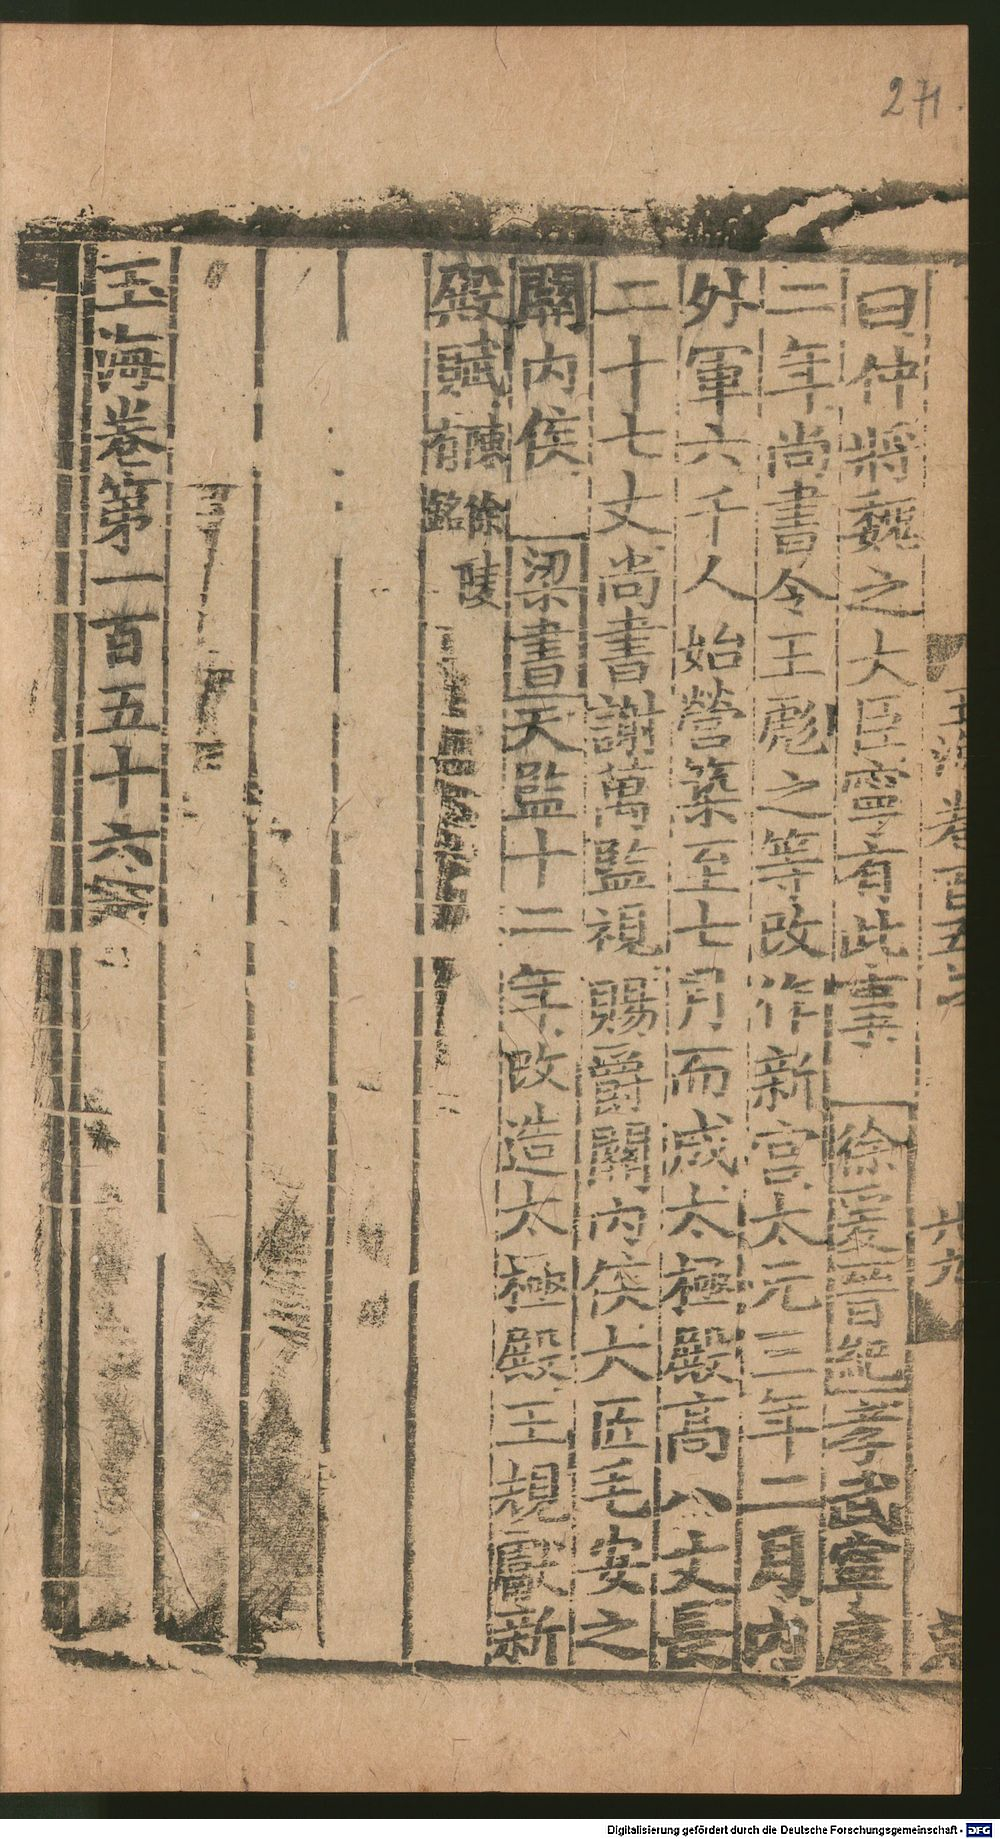 271.
玉海卷百五十六
六九
曰仲將魏之大臣寧有此事 徐爰晉紀孝武寧康
二年尚書令王彪之等改作新宮太元三年二月內
外軍六千人始營築至七月而成太極殿高八丈長
二十七丈尚書謝萬監視賜爵關內侯大匠毛安之
關內侯 梁書天監十二年改造太極殿王規獻新
殿賦陳徐陵
有銘
玉海卷第一百五十六
Digitalisierung gefördert durch die Deutsche Forschungsgemeinschaft - DFG